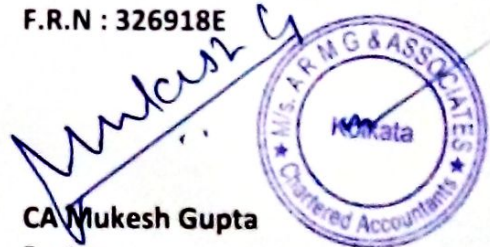 F.R.N : 326918E
Mukesh G
M/s. A R M G & ASSOCIATES
Kolkata
★ Chartered Accountants ★
CA Mukesh Gupta